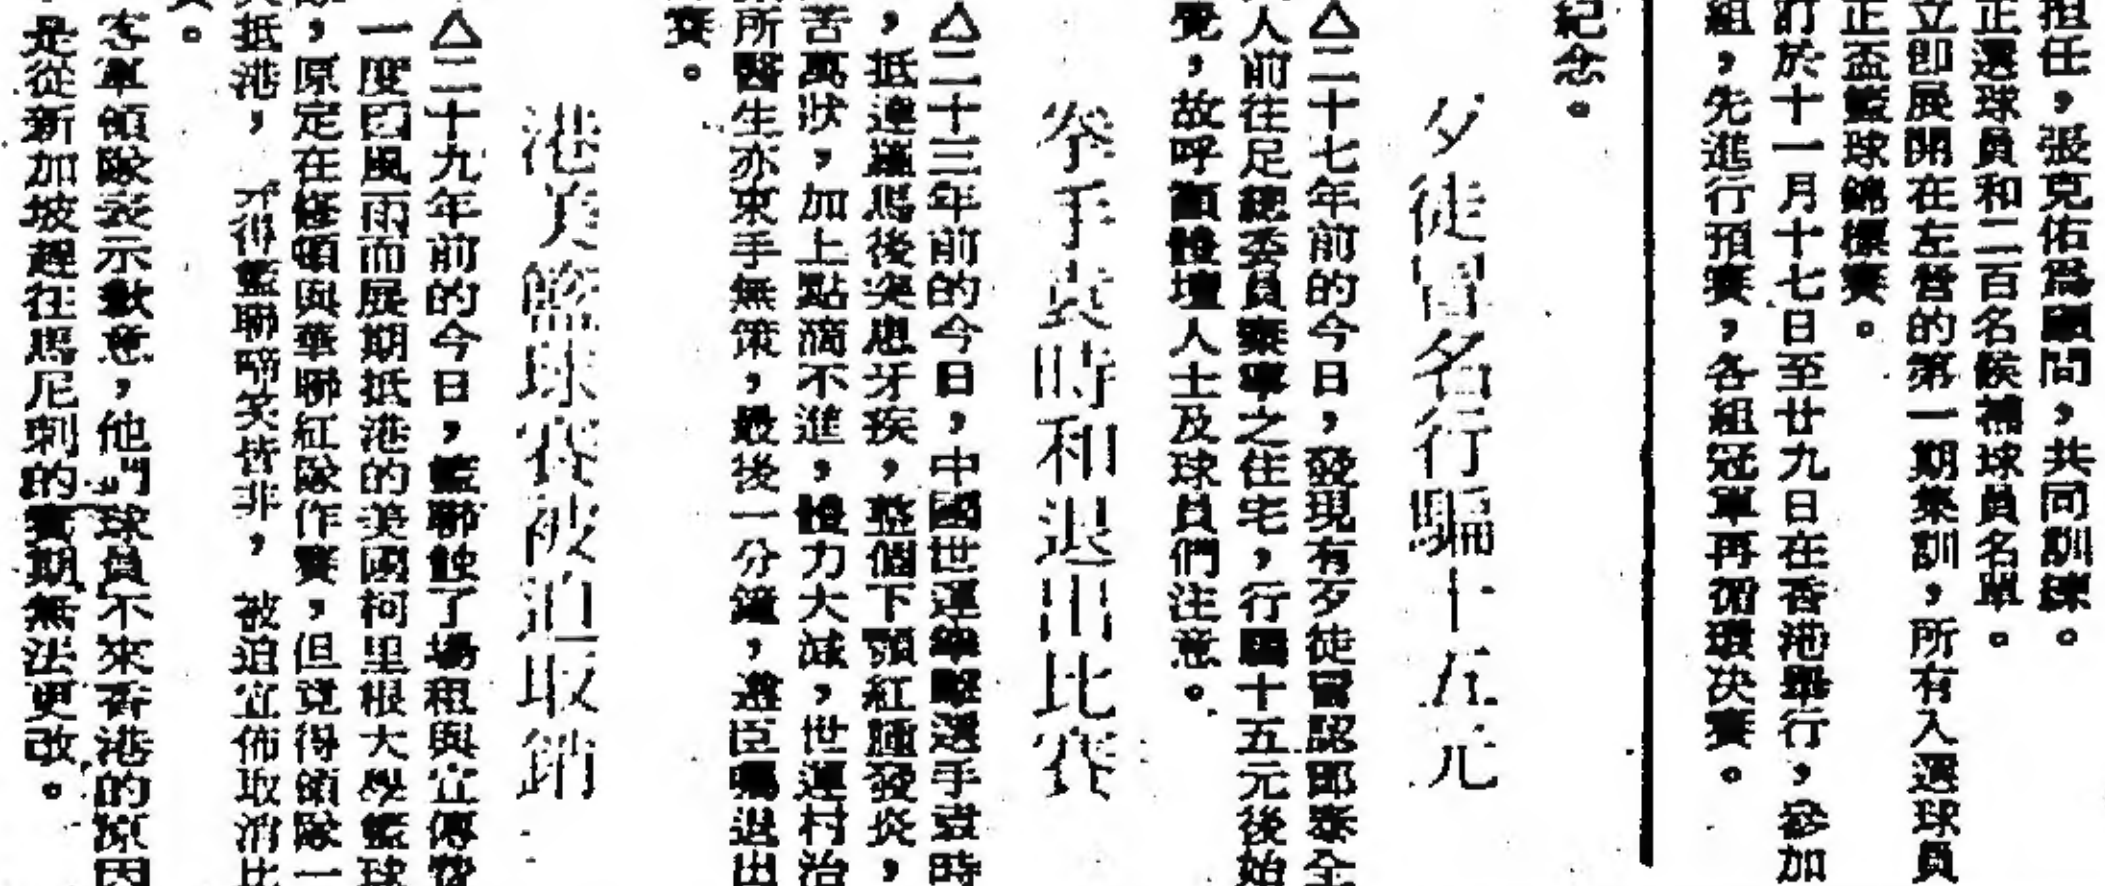 担任，張克佑爲顧問，共同訓練。
正選球員和二百名候補球員名單。
立即展開在左營的第一期集訓，所有入選球員
正盃籃球錦標賽。
訂於十一月十七日至廿九日在香港舉行，參加
組，先進行預賽，各組冠軍再循環決賽。
紀念。
歹徒冒名行騙十五元
△二十七年前的今日，發現有歹徒冒認鄧泰全
人前往足總委員秦寧之住宅，行騙十五元後始
覺，故呼籲體壇人士及球員們注意。
拳手袁時和退出比賽
△二十三年前的今日，中國世運拳擊選手袁時
，抵達羅馬後突患牙疾，整個下顎紅腫發炎，
苦萬狀，加上點滴不進，體力大減，世運村治
所醫生亦束手無策，最後一分鐘，遵臣囑退出
賽。
港美籃球賽被迫取銷
△二十九年前的今日，籃聯蝕了場租與宣傳費
一度因風雨而展期抵港的美國柯里根大學籃球
，原定在修頓與華聯紅隊作賽，但竟得領隊一
抵港，弄得籃聯啼笑皆非，被迫宣佈取消比
。
客軍領隊表示歉意，他們球員不來香港的原因
是從新加坡趕往馬尼刺的賽期無法更改。